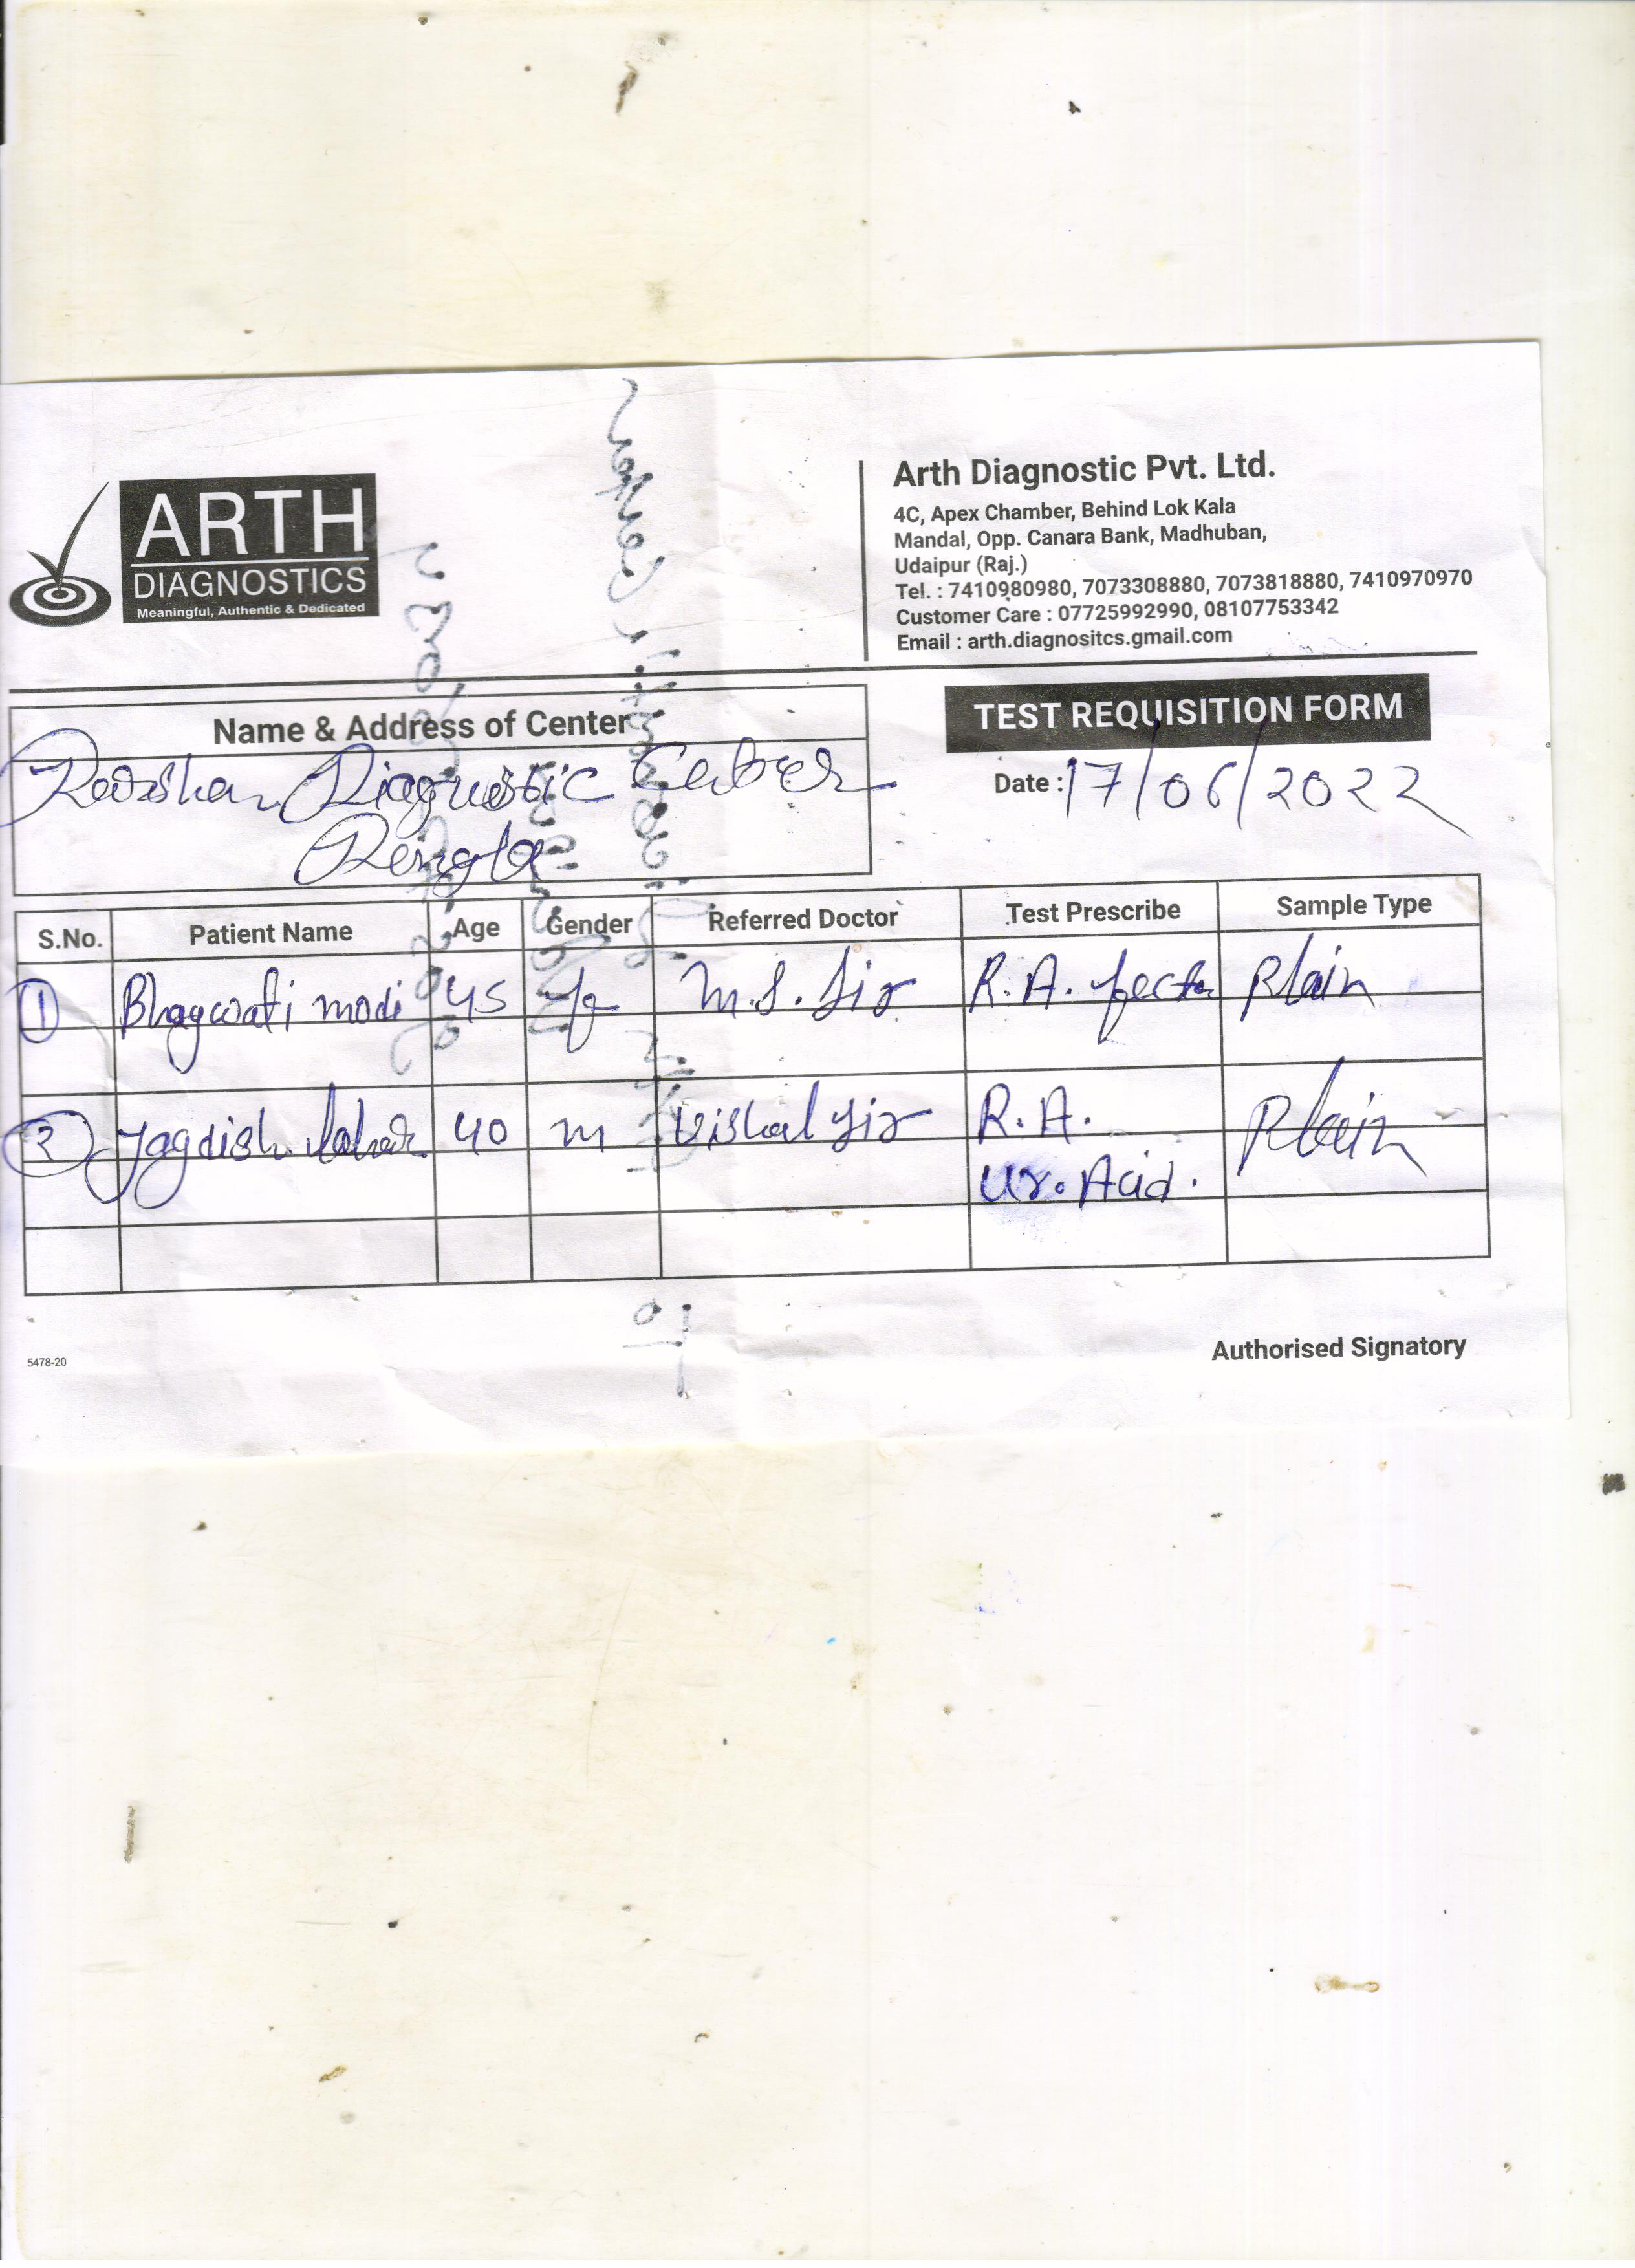 ARTH
DIAGNOSTICS
Meaningful, Authentic & Dedicated
Arth Diagnostic Pvt. Ltd.
4C, Apex Chamber, Behind Lok Kala
Mandal, Opp. Canara Bank, Madhuban,
Udaipur (Raj.)
Tel. : 7410980980, 7073308880, 7073818880, 7410970970
Customer Care : 07725992990, 08107753342
Email : arth.diagnositcs.gmail.com
Name & Address of Center
Diagnostic Center
TEST REQUISITION FORM
Date : 17/06/2022
S.No. Patient Name Age Gender Referred Doctor Test Prescribe Sample Type
1 Bhagwati modi 45 f M.S. Sir R.A. fecto Plain
2 Jagdish 40 m Vishal Sir R.A. Plain
Ur. Acid.
5478-20
Authorised Signatory